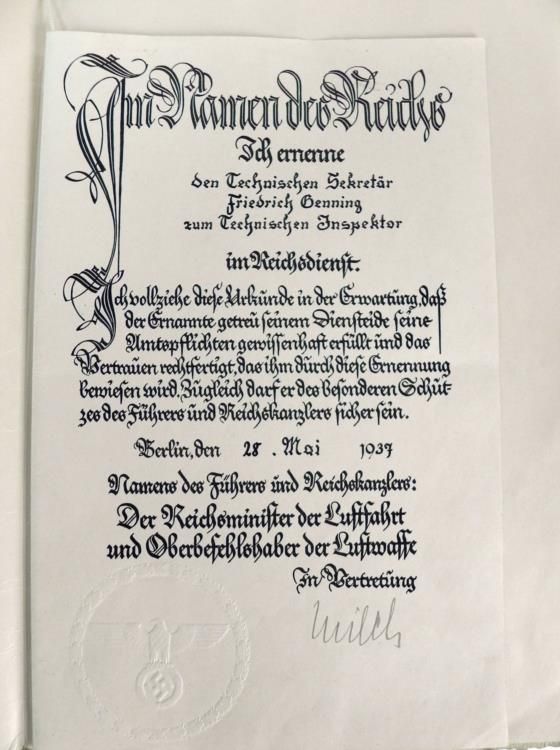 Im Namen des Reichs
Ich ernenne
den Technischen Sekretär
Friedrich Genning
zum Technischen Inspektor
im Reichsdienst.
Ich vollziehe diese Urkunde in der Erwartung, daß
der Ernannte getreu seinem Diensteide seine
Amtspflichten gewissenhaft erfüllt und das
Vertrauen rechtfertigt, das ihm durch diese Ernennung
bewiesen wird. Zugleich darf er des besonderen Schut-
zes des Führers und Reichskanzlers sicher sein.
Berlin, den 28. Mai 1937
Namens des Führers und Reichskanzlers:
Der Reichsminister der Luftfahrt
und Oberbefehlshaber der Luftwaffe
In Vertretung
Milch